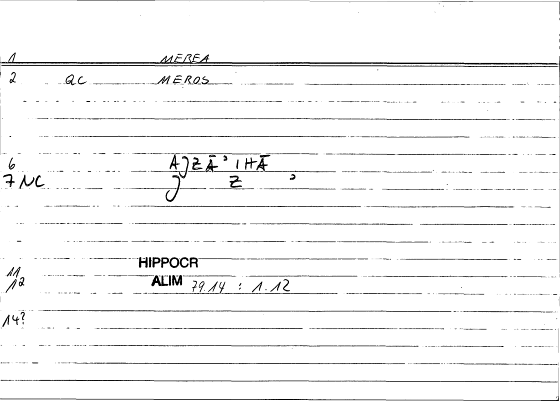 1 MEREA
2 QC MEROS
6
7 NC
HIPPOCR
11
12 ALIM 79.14 : 1.12
14?